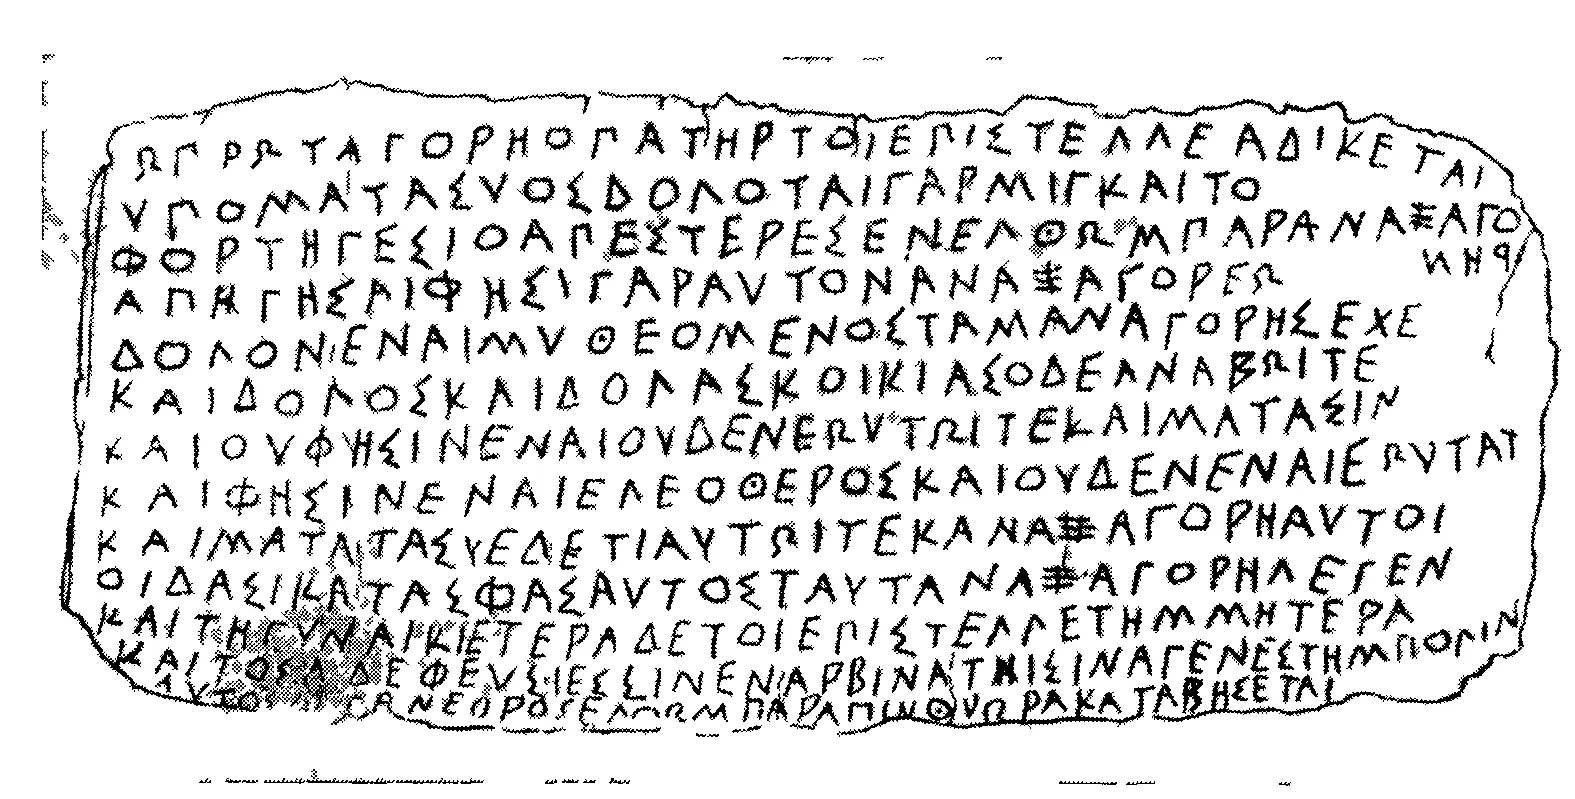 ΩΠΡΩΤΑΓΟΡΗΟΠΑΤΗΡΤΟΙΕΠΙΣΤΕΛΛΕΑΔΙΚΕΤΑΙ
ΥΠΟΜΑΤΑΣΥΟΣΔΟΛΟΤΑΙΓΑΡΜΙΓΚΑΙΤΟ
ΦΟΡΤΗΓΕΣΙΟΑΠΕΣΤΕΡΕΣΕΝΕΛΘΩΜΠΑΡΑΝΑΞΑΓΟ
ΡΗΝ
ΑΠΗΓΗΣΑΙΦΗΣΙΓΑΡΑΥΤΟΝΑΝΑΞΑΓΟΡΕΩ
ΔΟΛΟΝΕΝΑΙΜΥΘΕΟΜΕΝΟΣΤΑΜΑΝΑΓΟΡΗΣΕΧΕ
ΚΑΙΔΟΛΟΣΚΑΙΔΟΛΑΣΚΟΙΚΙΑΣΟΔΕΑΝΑΒΩΙΤΕ
ΚΑΙΟΥΦΗΣΙΝΕΝΑΙΟΥΔΕΝΕΩΥΤΩΙΤΕΚΑΙΜΑΤΑΣΙΝ
ΚΑΙΦΗΣΙΝΕΝΑΙΕΛΕΟΘΕΡΟΣΚΑΙΟΥΔΕΝΕΝΑΙΕΩΥΤΑΙ
ΚΑΙΜΑΤΑΤΑΣΥΕΔΕΤΙΑΥΤΩΙΤΕΚΑΝΑΞΑΓΟΡΗΑΥΤΟΙ
ΟΙΔΑΣΙΚΑΤΑΣΦΑΣΑΥΤΟΣΤΑΥΤΑΝΑΞΑΓΟΡΗΛΕΓΕΝ
ΚΑΙΤΗΓΥΝΑΙΚΙΕΤΕΡΑΔΕΤΟΙΕΠΙΣΤΕΛΛΕΤΗΜΜΗΤΕΡΑ
ΚΑΙΤΟΣΑΔΕΦΕΥΣΙΕΣΣΙΝΕΝΑΡΒΙΝΑΤΗΙΣΙΝΑΓΕΝΕΣΤΗΜΠΟΛΙΝ
ΑΥΤΟ ΝΕΩΡΟΣΕΛΘΩΜΠΑΡΑΜΙΝΘΥΩΡΑΚΑΤΑΒΗΣΕΤΑΙ